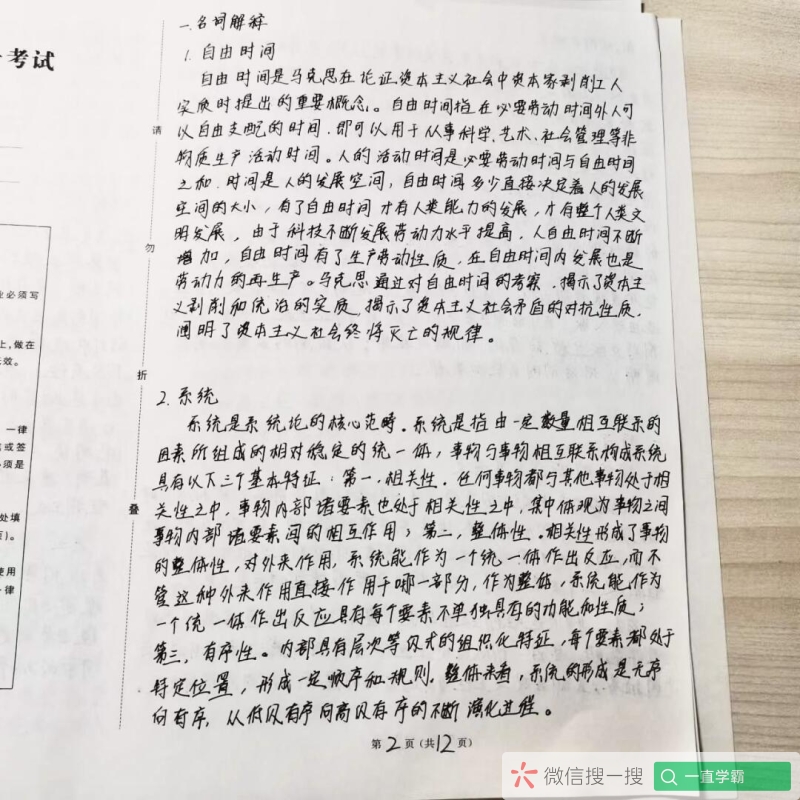 考试
业必须写
上,做在
无效。
一律
或签
必须是
处填
页)。
使用
律
请
勿
折
叠
一.名词解释
1.自由时间
自由时间是马克思在论证资本主义社会中资本家剥削工人
实质时提出的重要概念。自由时间指在必要劳动时间外人可
以自由支配的时间.即可以用于从事科学、艺术、社会管理等非
物质生产活动时间。人的活动时间是必要劳动时间与自由时间
之和.时间是人的发展空间,自由时间多少直接决定着人的发展
空间的大小,有了自由时间才有人类能力的发展,才有整个人类文
明发展,由于科技不断发展劳动力水平提高,人自由时间不断
增加,自由时间有了生产劳动性质,在自由时间内发展也是
劳动力的再生产。马克思通过对自由时间的考察,揭示了资本主
义剥削和统治的实质,揭示了资本主义社会矛盾的对抗性质,
阐明了资本主义社会终将灭亡的规律。
2.系统
系统是系统论的核心范畴.系统是指由一定数量相互联系的
因素所组成的相对稳定的统一体,事物与事物相互联系构成系统
具有以下三个基本特征:第一.相关性.任何事物都与其他事物处于相
关性之中,事物内部诸要素也处于相关性之中,集中体现为事物之间
事物内部诸要素间的相互作用;第二,整体性.相关性形成了事物
的整体性,对外来作用,系统能作为一个统一体作出反应,而不
管这种外来作用直接作用于哪一部分,作为整体,系统能作为
一个统一体作出反应具有每个要素不单独具有的功能和性质;
第三,有序性。内部具有层次等级式的组织化特征,每个要素都处于
特定位置,形成一定顺序和规则.整体来看,系统的形成是无序
向有序,从低级有序向高级有序的不断演化进程。
第2页(共12页)
微信搜一搜
一直学霸